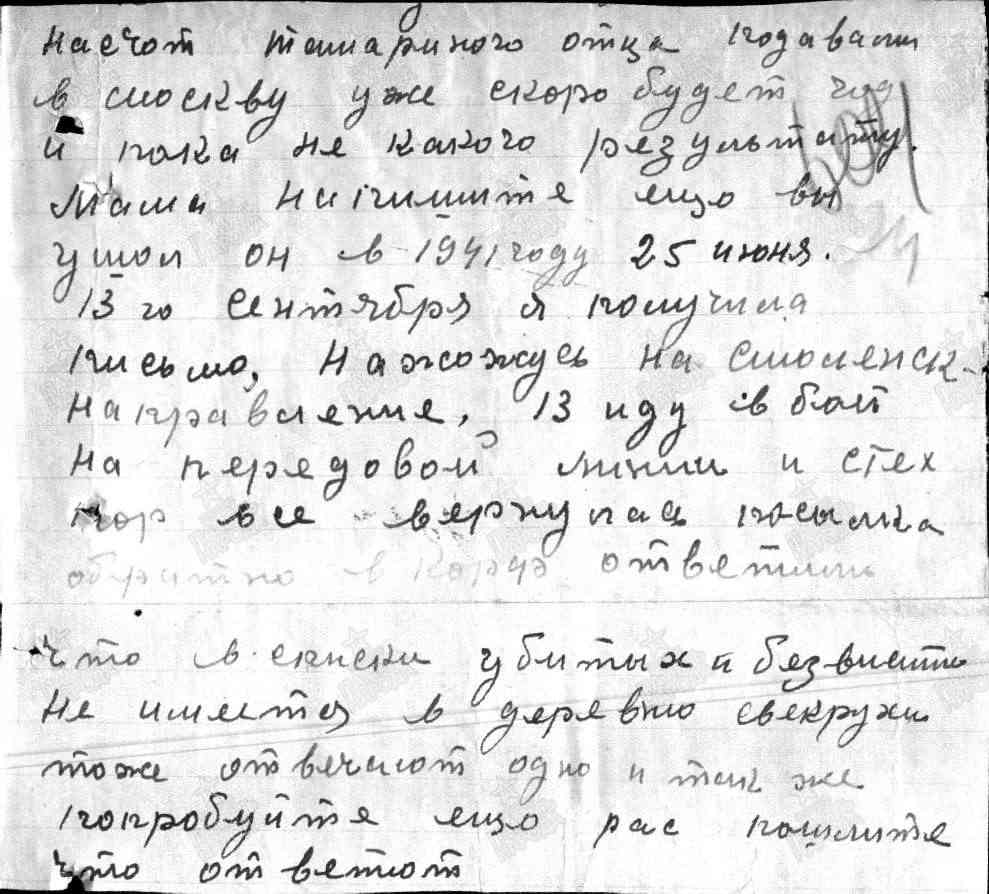 насчот тамариного отца подавали
в москву уже скоро будет год
и пока не какого результату.
Мама напишите ещо вы
ушол он в 1941 году 25 июня.
13 го сентября я получила
письмо, нахожусь на смоленск-
направление, 13 иду в бой
на передовой линии и стех
пор все вернулась посылка
обратно в ответили
что в списки убитых и безвисти
не имеетя в деревню свекрухи
тоже отвечают одно и так же
попробуйте ещо рас пошлите
что ответют